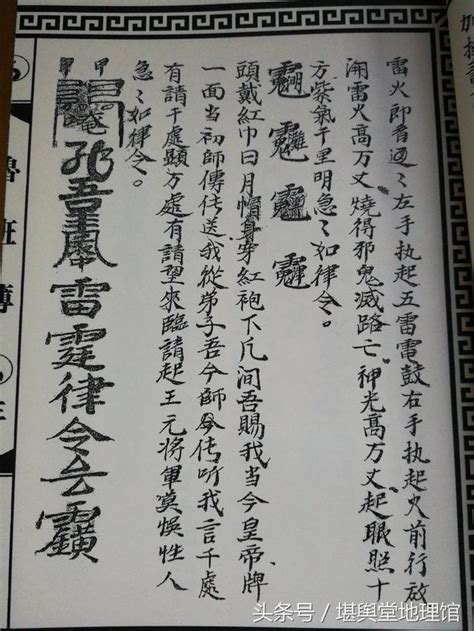 雷火即看過〻左手执起五雷電鼓右手执起火前行放
開雷火高万丈燒得邪鬼滅路亡神光高万丈起眼照十
方紫氣千里明急〻如律令。
頭戴紅巾日月帽身穿紅袍下凡间吾賜我当今皇帝牌
一面当初師傳传送我從弟子吾今師今传听我言千處
有請千處顯方處有請望來臨請起王元将軍莫悞性人
急〻如律令。
甲 甲
雷霆律令
魯班
头条号／堪舆堂地理馆